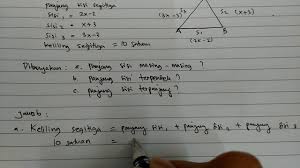 panjang sisi segitiga
sisi₁ = 2x-2
sisi₂ = x+3
sisi₃ = 3x-3
Keliling segitiga = 10 satuan
(3x-3)
S₃
S₂ (x+3)
A
S₁
B
(2x-2)
Ditanyakan : a. panjang sisi masing-masing ?
b. panjang sisi terpendek ?
c. panjang sisi terpanjang ?
Jawab :
a. Keliling segitiga = panjang sisi₁ + panjang sisi₂ + panjang sisi₃
10 satuan =